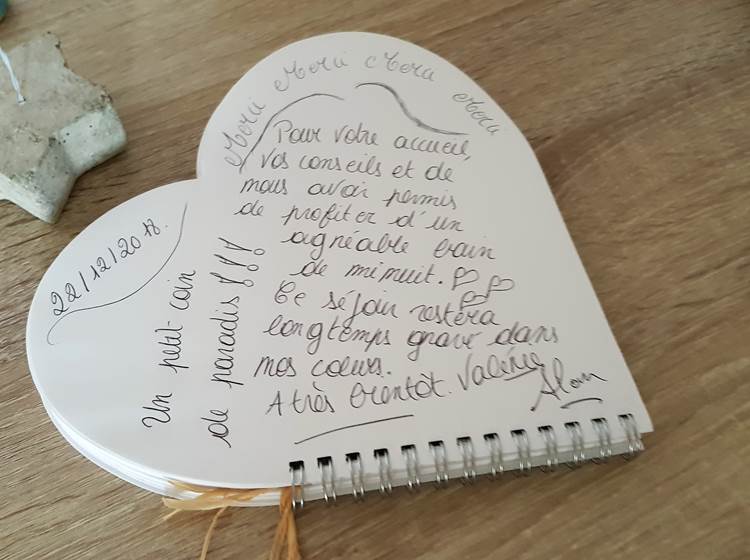 Merci Merci Merci Merci
22/12/2018.
Un petit coin
de paradis !!!
Pour votre accueil,
vos conseils et de
nous avoir permis
de profiter d'un
agréable bain
de minuit. ♡♡♡
Ce séjour restera
longtemps gravé dans
nos cœurs.
A très bientôt. Valérie
Alain